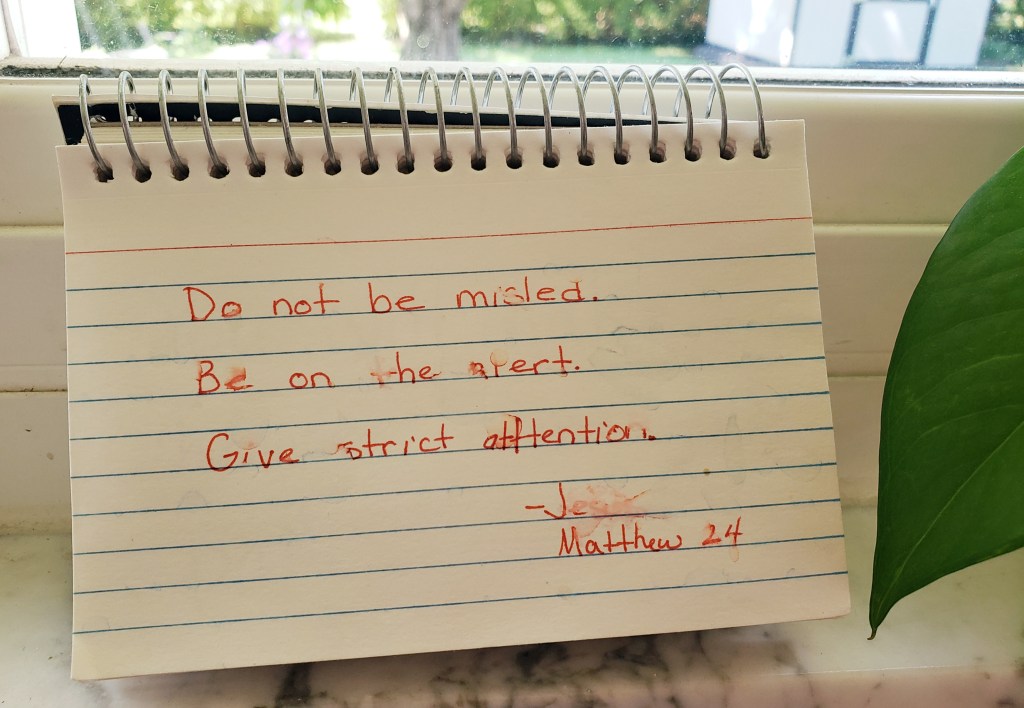 Do not be misled.
Be on the alert.
Give strict atttention.
-Jesus
Matthew 24